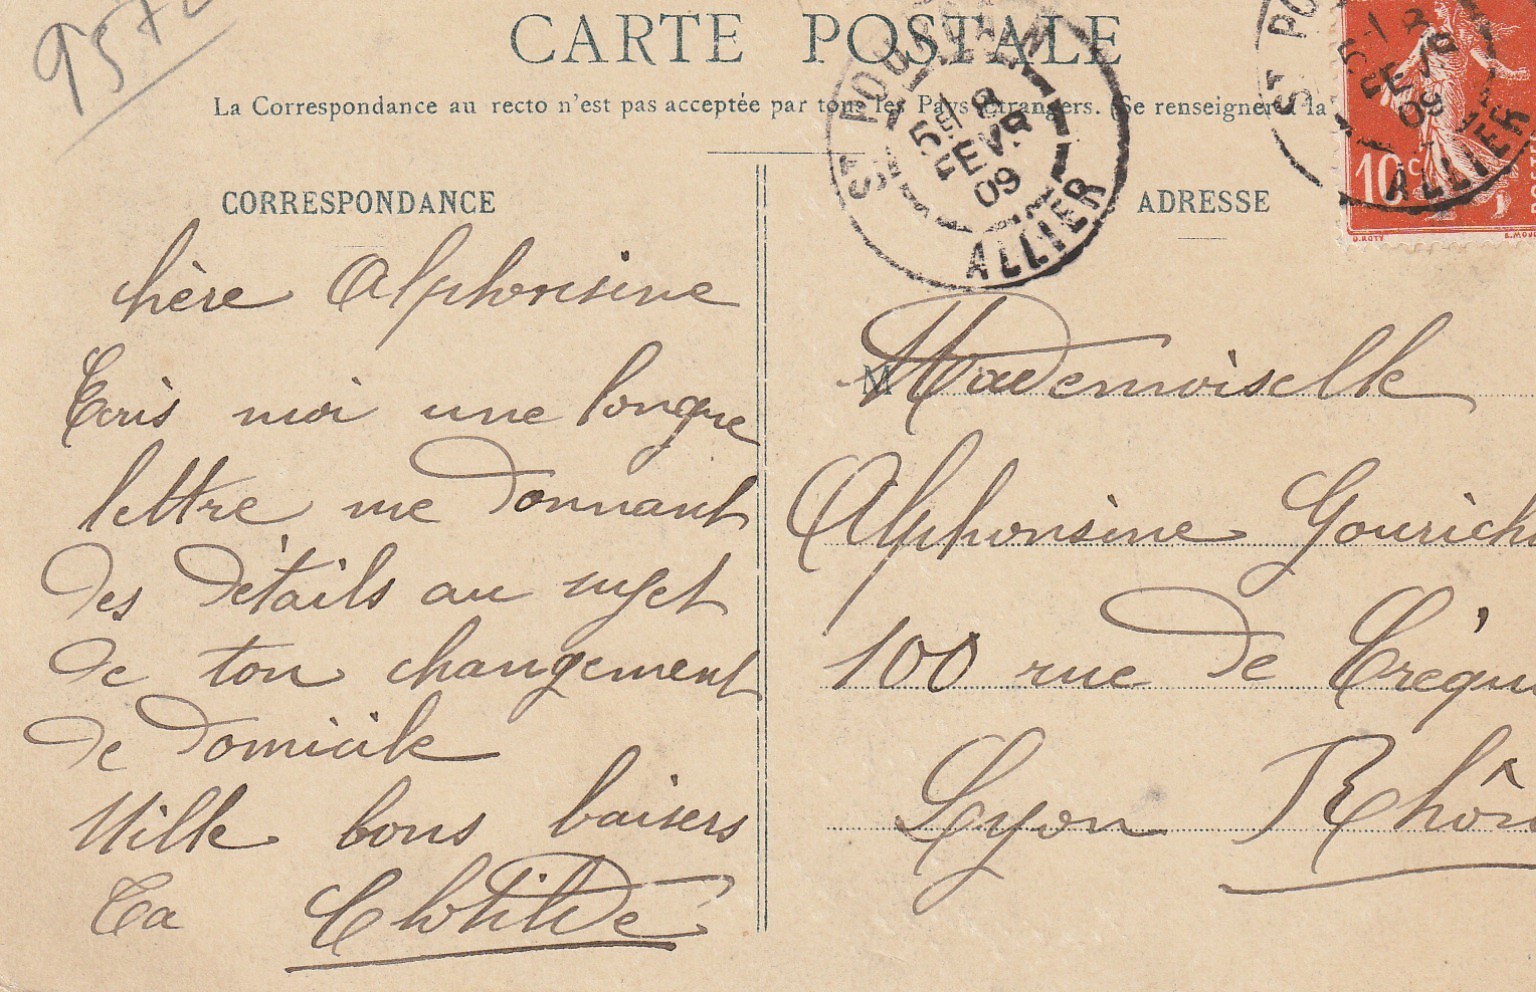 957
CARTE POSTALE
La Correspondance au recto n'est pas acceptée par tous les Pays étrangers. (Se renseigner à la
CORRESPONDANCE
chère Alphonsine
Ecris moi une longue
lettre me donnant
des détails au sujet
de ton changement
de domicile
Mille bons baisers
Ta Clotilde
ST POURÇAIN
5-1 8
FEVR
09
ALLIER
ADRESSE
M
Mademoiselle
Alphonsine
100 rue de Créqui
Lyon Rhône
ST PO
5-1 8
FEVR
09
ALLIER
10c
O.ROTY